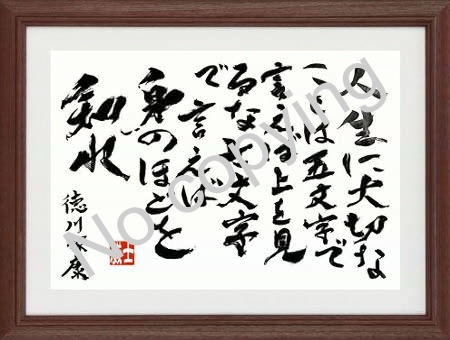 人生に大切な
ことは五文字で
言えば上を見
るな七文字
で言えば
身のほどを
知れ
徳川家康
No copying